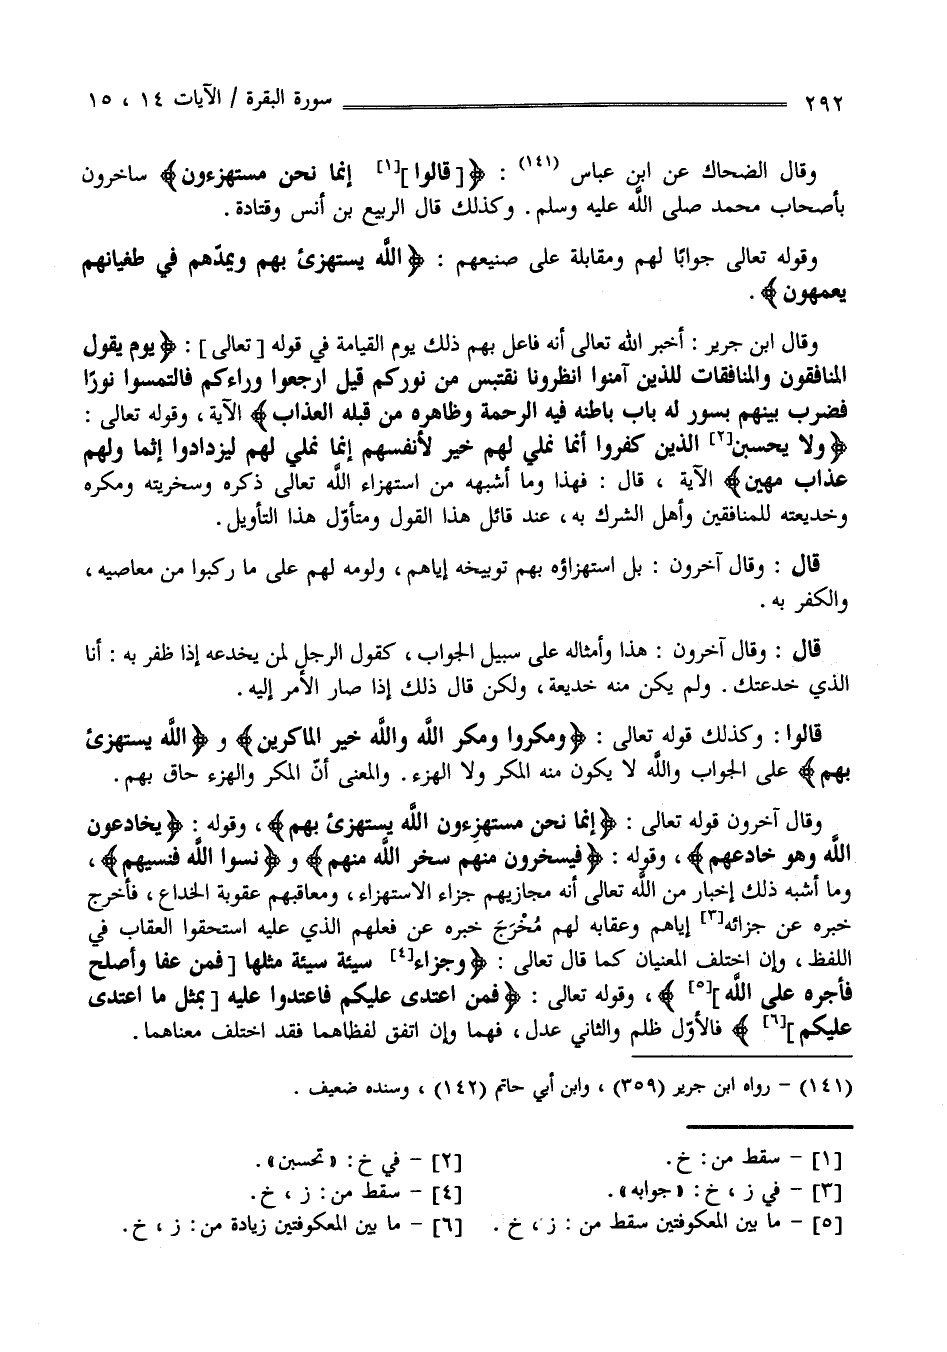 ٢٩٢ سورة البقرة / الآيات ١٤ ، ١٥
وقال الضحاك عن ابن عباس (١٤١) : ﴿[قالوا][١] إنما نحن مستهزءون﴾ ساخرون
بأصحاب محمد صلى اللَّه عليه وسلم. وكذلك قال الربيع بن أنس وقتادة.
وقوله تعالى جوابًا لهم ومقابلة على صنيعهم : ﴿اللَّه يستهزئ بهم ويمدّهم في طغيانهم
يعمهون﴾.
وقال ابن جرير : أخبر الله تعالى أنه فاعل بهم ذلك يوم القيامة في قوله [تعالى] : ﴿يوم يقول
المنافقون والمنافقات للذين آمنوا انظرونا نقتبس من نوركم قيل ارجعوا وراءكم فالتمسوا نورًا
فضرب بينهم بسور له باب باطنه فيه الرحمة وظاهره من قبله العذاب﴾ الآية، وقوله تعالى :
﴿ولا يحسبن[٢] الذين كفروا أنما نملي لهم خير لأنفسهم إنما نملي لهم ليزدادوا إثما ولهم
عذاب مهين﴾ الآية ، قال : فهذا وما أشبهه من استهزاء اللَّه تعالى ذكره وسخريته ومكره
وخديعته للمنافقين وأهل الشرك به، عند قائل هذا القول ومتأوّل هذا التأويل.
قال : وقال آخرون : بل استهزاؤه بهم توبيخه إياهم، ولومه لهم على ما ركبوا من معاصيه،
والكفر به.
قال : وقال آخرون : هذا وأمثاله على سبيل الجواب، كقول الرجل لمن يخدعه إذا ظفر به : أنا
الذي خدعتك. ولم يكن منه خديعة، ولكن قال ذلك إذا صار الأمر إليه.
قالوا : وكذلك قوله تعالى : ﴿ومكروا ومكر اللَّه واللَّه خير الماكرين﴾ و ﴿اللَّه يستهزئ
بهم﴾ على الجواب واللَّه لا يكون منه المكر ولا الهزء. والمعنى أنّ المكر والهزء حاق بهم.
وقال آخرون قوله تعالى : ﴿إنما نحن مستهزِءون اللَّه يستهزئ بهم﴾، وقوله : ﴿يخادعون
اللَّه وهو خادعهم﴾، وقوله : ﴿فيسخرون منهم سخر اللَّه منهم﴾ و ﴿نسوا اللَّه فنسيهم﴾،
وما أشبه ذلك إخبار من اللَّه تعالى أنه مجازيهم جزاء الاستهزاء، ومعاقبهم عقوبة الخداع، فأخرج
خبره عن جزائه[٣] إياهم وعقابه لهم مُخْرَجَ خبره عن فعلهم الذي عليه استحقوا العقاب في
اللفظ، وإن اختلف المعنيان كما قال تعالى : ﴿وجزاء[٤] سيئة سيئة مثلها [فمن عفا وأصلح
فأجره على اللَّه][٥] ﴾، وقوله تعالى : ﴿فمن اعتدى عليكم فاعتدوا عليه [بمثل ما اعتدى
عليكم][٦] ﴾ فالأوّل ظلم والثاني عدل، فهما وإن اتفق لفظاهما فقد اختلف معناهما.
(١٤١) - رواه ابن جرير (٣٥٩) ، وابن أبي حاتم (١٤٢) ، وسنده ضعيف .
[١] - سقط من : خ. [٢] - في خ : «تحسبن».
[٣] - في ز ، خ : «جوابه». [٤] - سقط من : ز ، خ.
[٥] - ما بين المعكوفتين سقط من : ز ، خ . [٦] - ما بين المعكوفتين زيادة من : ز ، خ.